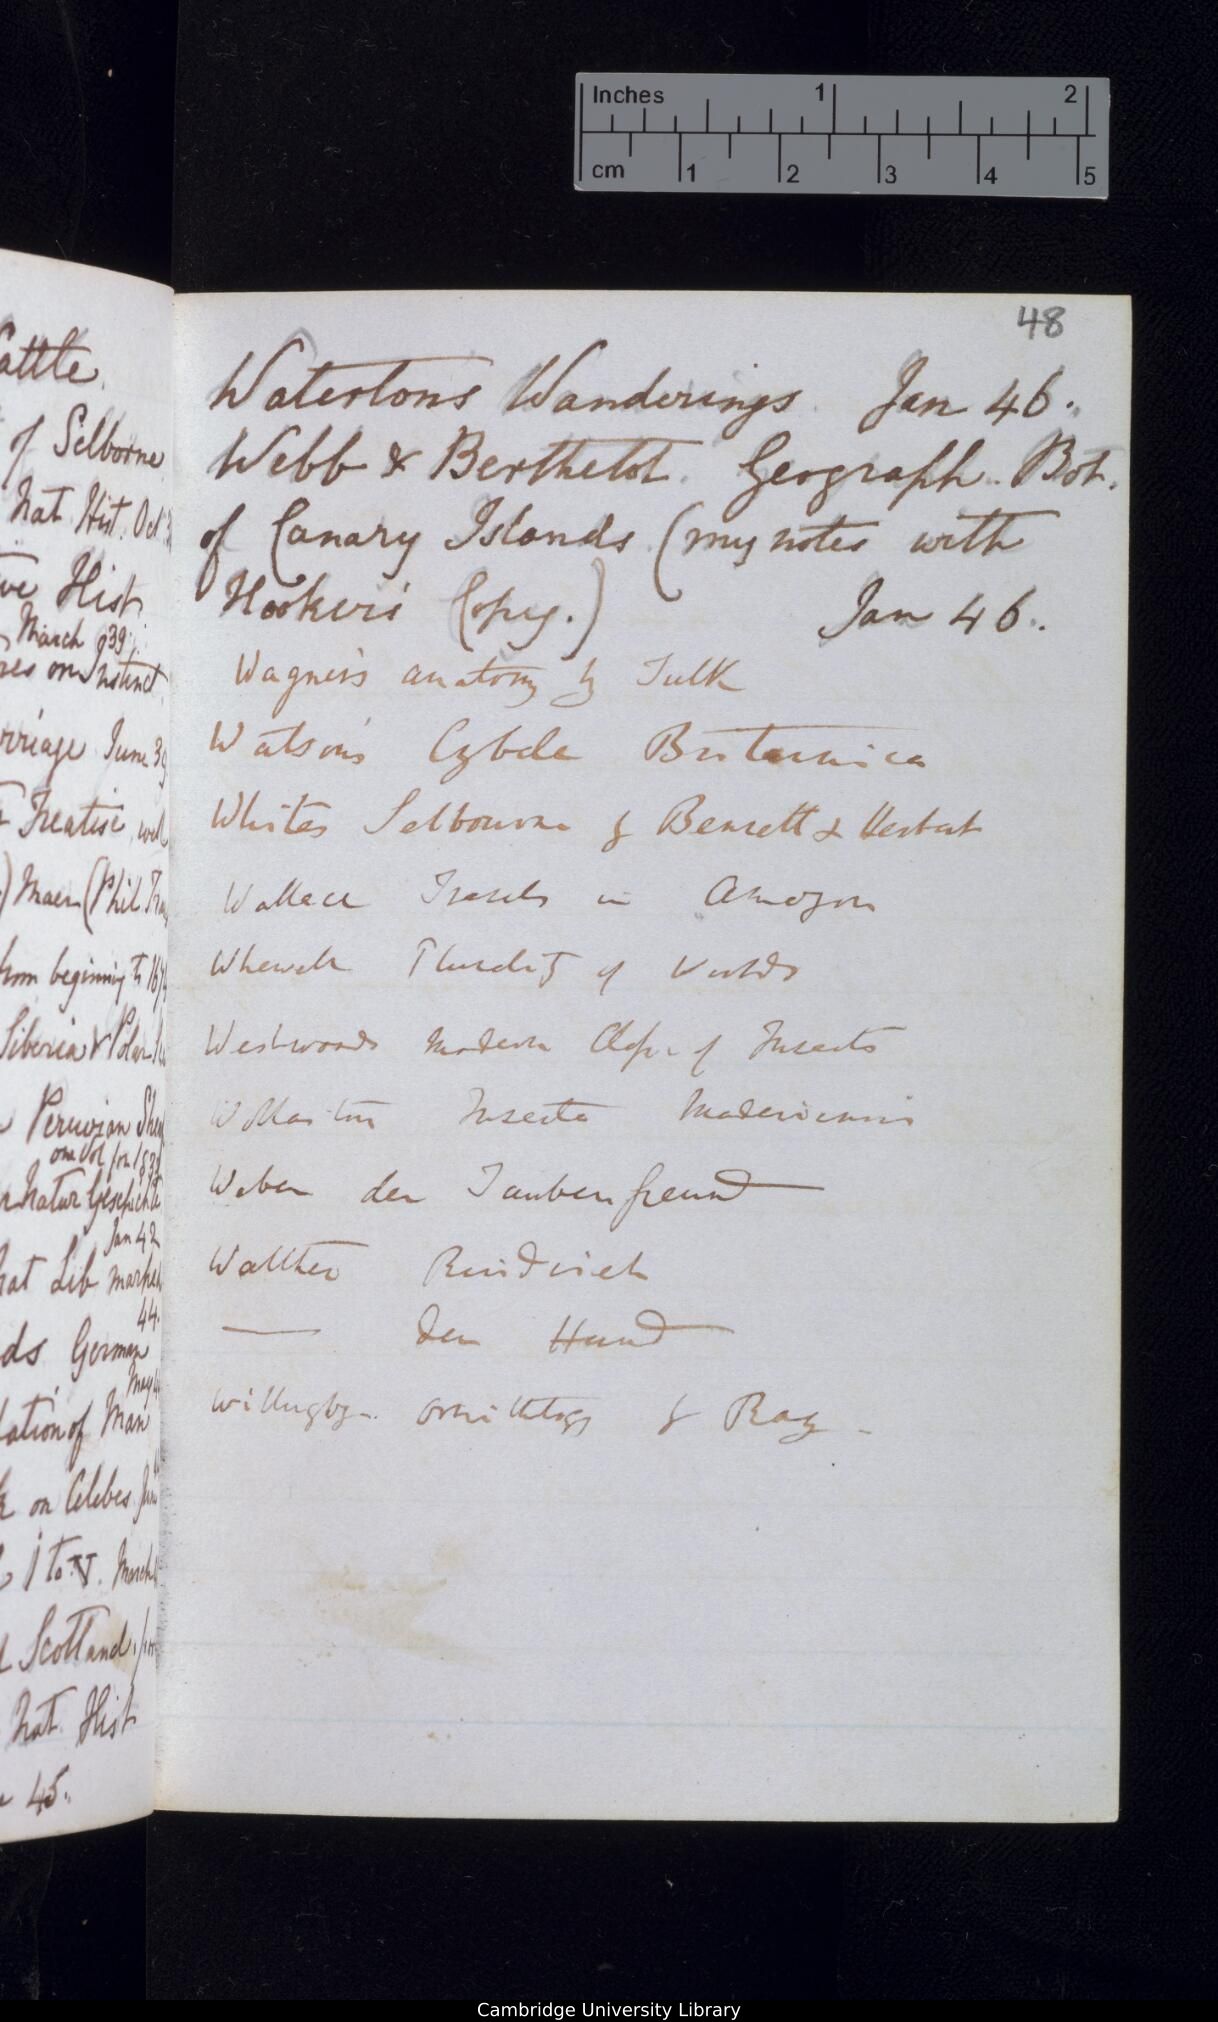 Inches 1 2
cm 1 2 3 4 5
attle.
of Selborne
Nat. Hist. Oct.
Hist
March 39
on Instinct
June 39
Treatise
Maer (Phil. Tra
from beginning to 167
Siberia & Polar
Peruvian She
one Vol for 183
Natur Geschichte
Jan 42
Lib marked
44.
ds German
May 4
lation of Man
on Celebes. Jun
1 to V. March
Scotland.
Nat. Hist
45.
48
Watertons Wanderings. Jan 46.
Webb & Berthelot. Geograph. Bot.
of Canary Islands (my notes with
Hooker's Copy.) Jan 46.
Wagner's anatomy by Tulk
Watson's Cybele Britannica
Whites Selbourne by Bennett & Herbert
Wallace Travels in Amazon
Whewell Plurality of Worlds
Westwoods Modern Class. of Insects
Wollaston Insecta Maderiensis
Weber der Taubenfreund
Walther Rindvieh
—— Der Hund
Willugby. Ornithology by Ray -
Cambridge University Library